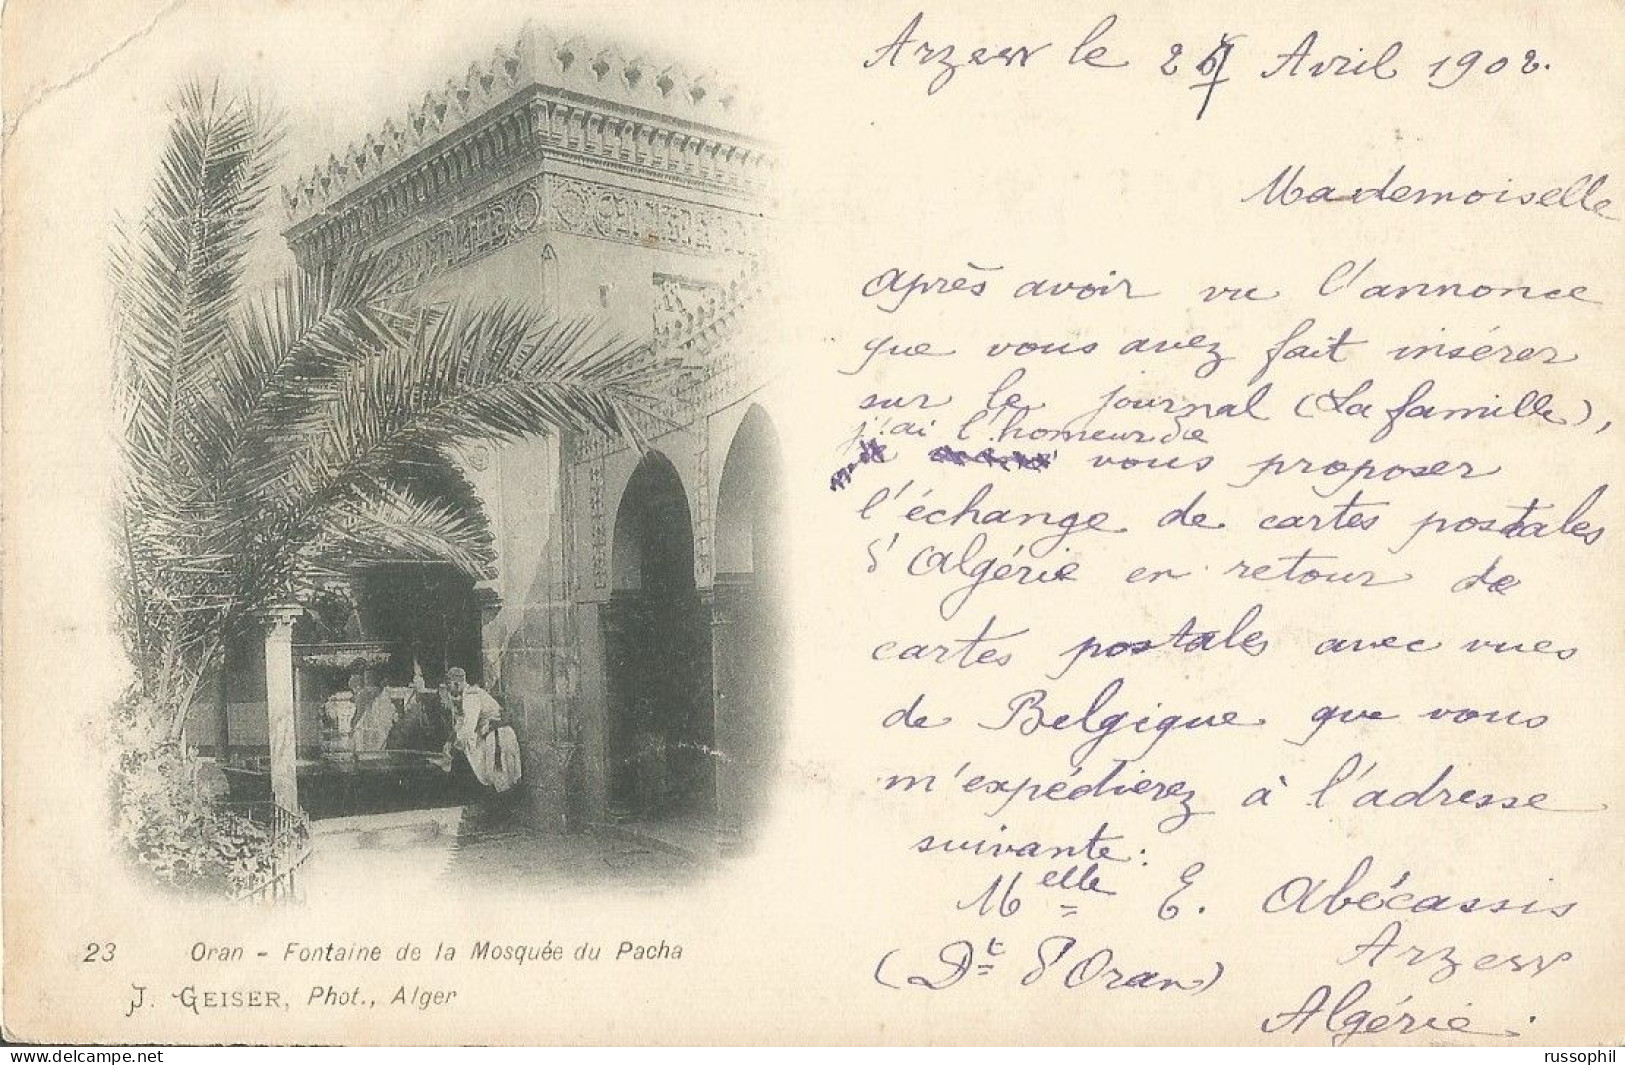 Arzew le 27 Avril 1902.
Mademoiselle
après avoir vu l'annonce
que vous avez fait insérer
sur le journal (La famille),
j'ai l'honneur de
vous proposer
l'échange de cartes postales
d'Algérie en retour de
cartes postales avec vues
de Belgique que vous
m'expédierez à l'adresse
suivante:
Melle E. Abécassis
(Dt d'Oran) Arzew
Algérie.
23 Oran - Fontaine de la Mosquée du Pacha
J. GEISER, Phot., Alger
>> www.delcampe.net
russophil